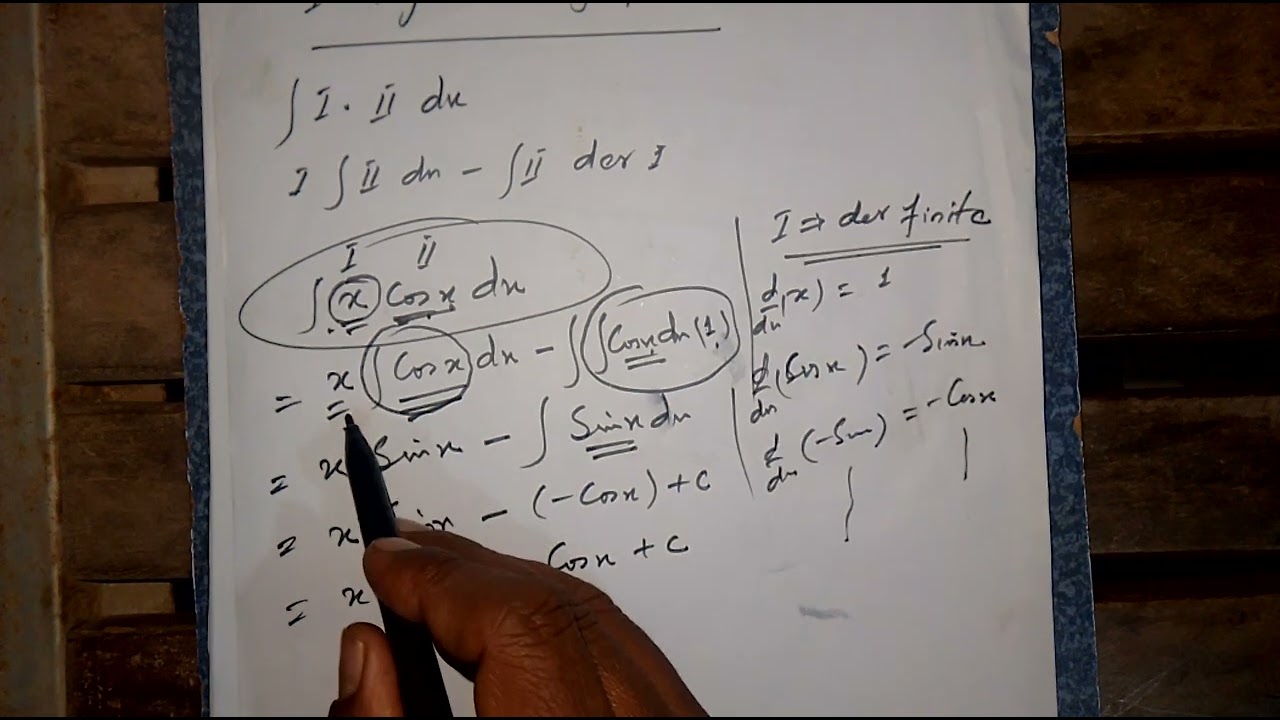 ∫ I . II dx
I ∫ II dx - ∫ II der I
I II
∫ x Cosx dx
= x ∫ Cosx dx - ∫ ∫ Cosx dx (1)
= x Sinx - ∫ Sinx dx
= x Sinx - (-Cosx) + c
= x Cosx + c
I ⇒ der finite
d/dx (x) = 1
d/dx (Cosx) = -Sinx
d/dx (-Sin) = -Cosx